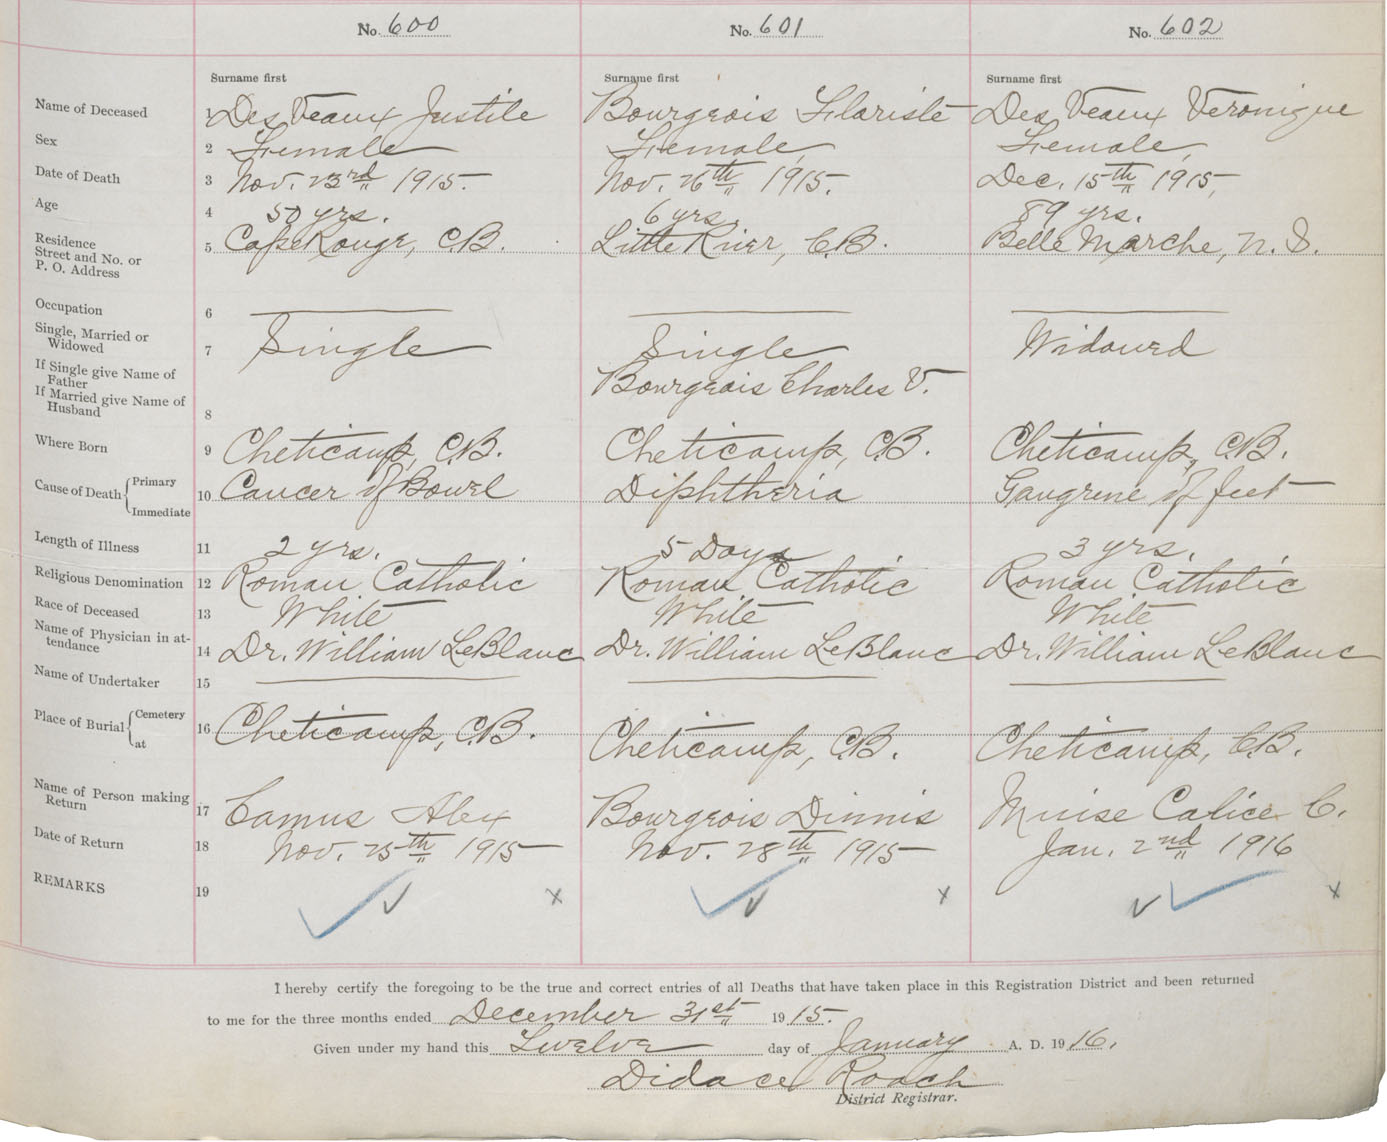 No. 600 No. 601 No. 602
Surname first Surname first Surname first
Name of Deceased 1 Des Veaux Justile Bourgeois Flariste Des Veaux Veronique
Sex 2 Female Female, Female,
Date of Death 3 Nov. 23rd 1915. Nov. 26th 1915. Dec. 15th 1915,
Age 4 50 yrs. 6 yrs. 89 yrs.
Residence
Street and No. or
P. O. Address 5 Cape Rouge, C.B. Little River, C.B. Belle Marche, N.S.
Occupation 6
Single, Married or
Widowed 7 Single Single Widowed
If Single give Name of
Father Bourgeois Charles V.
If Married give Name of
Husband 8
Where Born 9 Cheticamp, C.B. Cheticamp, C.B. Cheticamp, C.B.
Cause of Death { Primary 10 Cancer of Bowel Diphtheria Gangrene of feet
Immediate
Length of Illness 11 2 yrs. 5 Days 3 yrs.
Religious Denomination 12 Roman Catholic Roman Catholic Roman Catholic
Race of Deceased 13 White White White
Name of Physician in at-
tendance 14 Dr. William LeBlanc Dr. William LeBlanc Dr. William LeBlanc
Name of Undertaker 15
Place of Burial { Cemetery 16 Cheticamp, C.B. Cheticamp, C.B. Cheticamp, C.B.
at
Name of Person making
Return 17 Camus Alex Bourgeois Dinnis Muise Calice C.
Date of Return 18 Nov. 25th 1915 Nov. 28th 1915 Jan. 2nd 1916
REMARKS 19 ✓ ✓ x ✓ ✓ x ✓ ✓ x
I hereby certify the foregoing to be the true and correct entries of all Deaths that have taken place in this Registration District and been returned
to me for the three months ended December 31st 1915.
Given under my hand this Twelve day of January A. D. 1916.
Didace Roach
District Registrar.